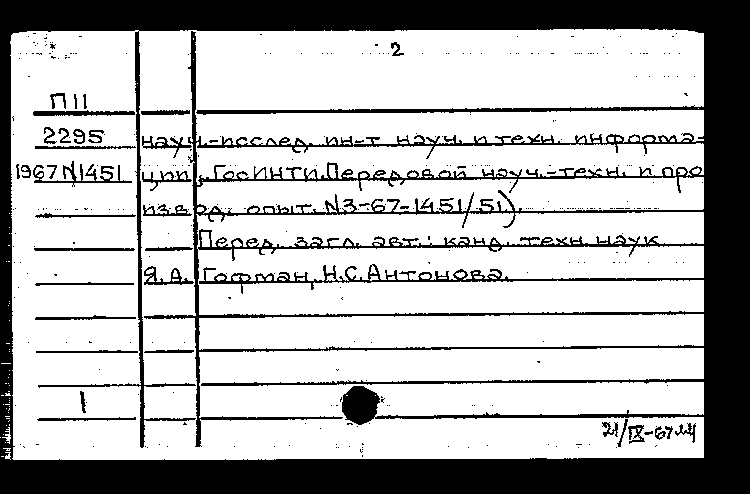 2
П11
2295 науч.-исслед. ин-т науч. и техн. информа-
1967 N1451 ции. ГосИНТИ. Передовой науч.-техн. и про
извод. опыт. N3-67-1451/51).
Перед. загл. авт.: канд. техн. наук
Я.А. Гофман, Н.С. Антонова.
1
21/IX-67